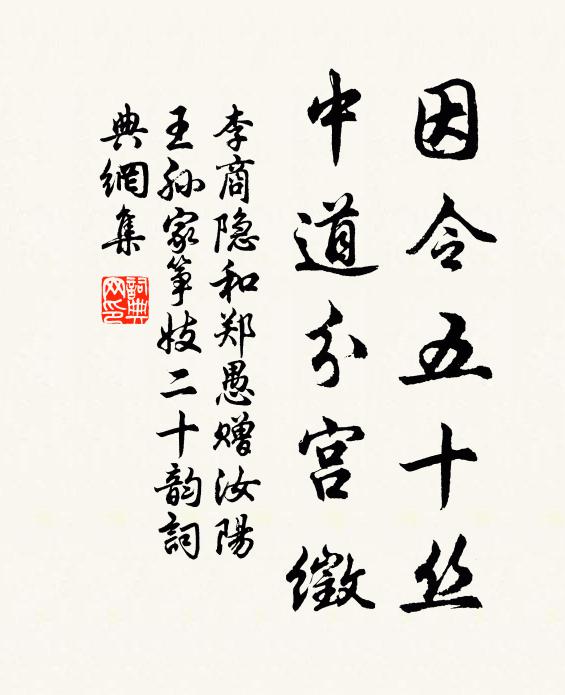 因令五十丝
中道分宫徵
李商隐和郑愚赠汝陽
王孙家筝妓二十韵詞
典網集
詞典網印